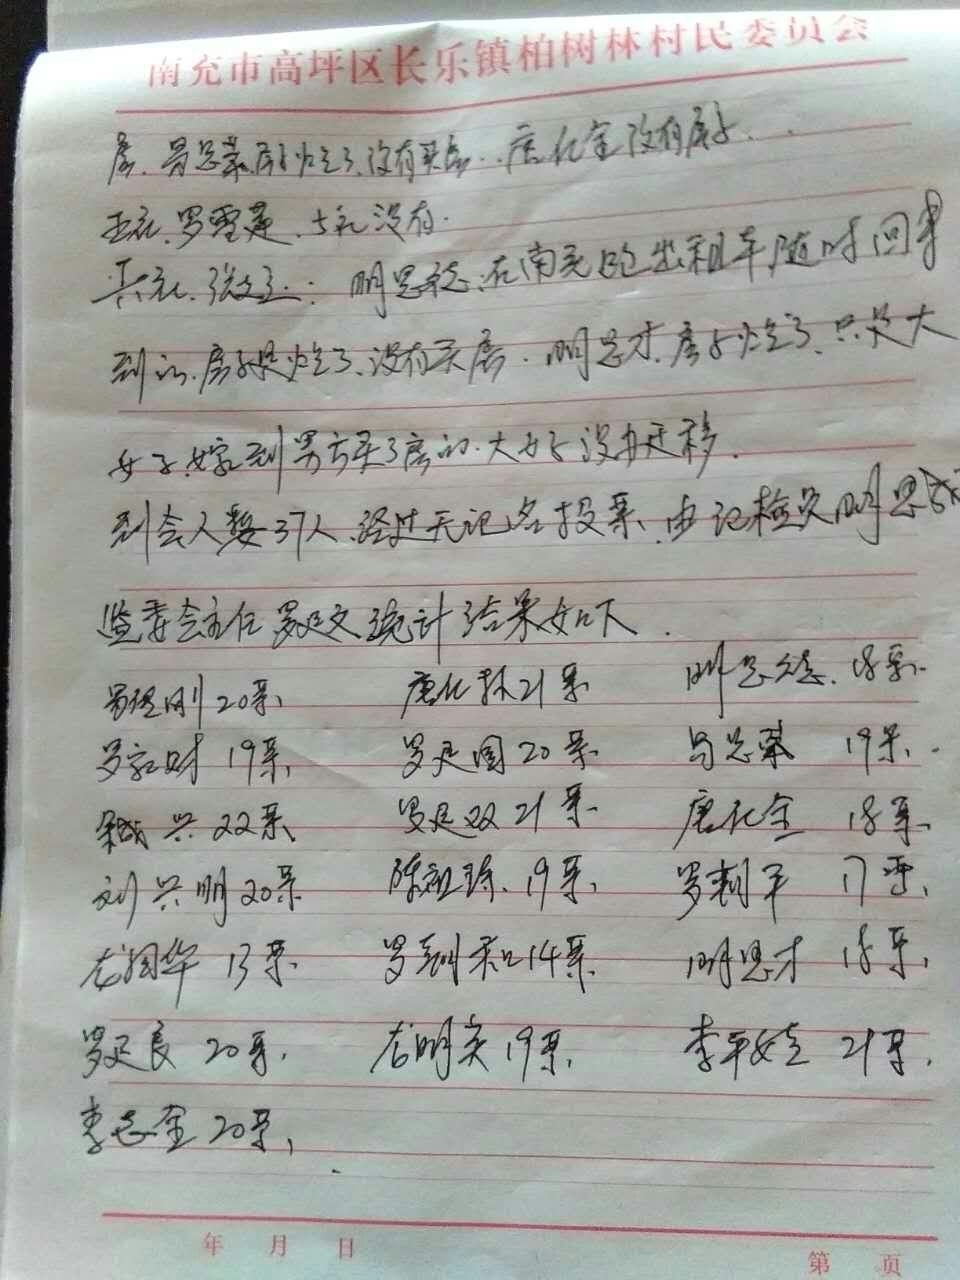 南充市高坪区长乐镇柏树林村民委员会
房、没有买房、唐化全没有房子、
五社、罗雪莲、七社没有。
六社、明思德、在南充跑出租车,随时回来
到的、房子是烂了、没有买房、明思才、房子烂了、只是大
女子嫁到男方买了房的、大女子没办迁移、
到会人数37人、经过无记名投票、由记检员明思
监委会主任罗廷文统计结果如下、
刚20票、 唐化林21票 明思德、18票、
罗家财 19票、 罗廷国20票、 19票、
兴22票、 罗廷双21票、 唐化全 18票、
刘兴明20票 陈祖琼、19票、 罗 平 17票、
龙国华 13票、 罗 和14票、 明思才 18票、
罗廷良 20票、 龙明 19票、 李平 21票、
李志全 20票、
年 月 日
第 页